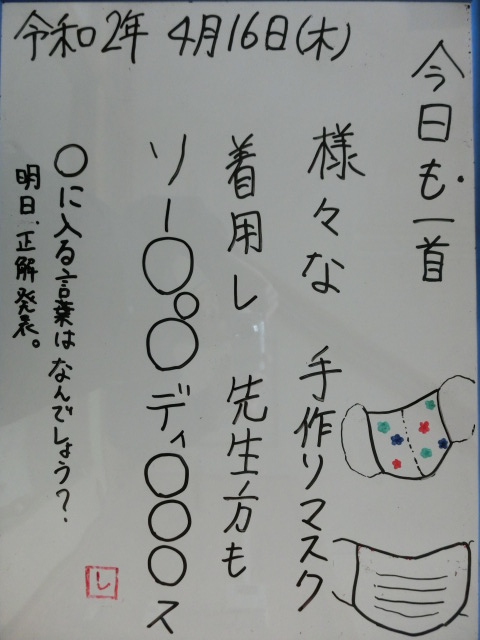 令和2年 4月16日(木)
今日も一首
様々な 手作りマスク
着用し 先生方も
ソー〇〇〇ディ〇〇〇ス
〇に入る言葉はなんでしょう?
明日、正解発表。
し